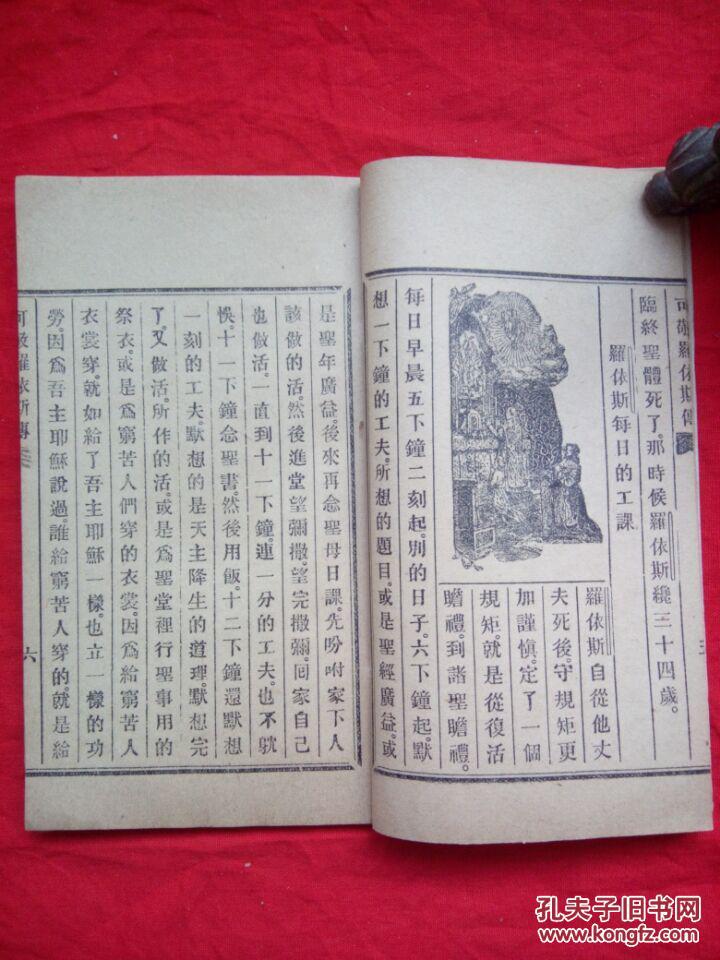 可敬羅依斯傳
臨終聖體死了。那時候羅依斯纔三十四歲。
羅依斯每日的工課
羅依斯自從他丈
夫死後。守規矩更
加謹愼。定了一個
規矩。就是從復活
瞻禮。到諸聖瞻禮。
每日早晨五下鐘二刻起。別的日子。六下鐘起。默
想一下鐘的工夫。所想的題目。或是聖經廣益。或
是聖年廣益。後來再念聖母日課。先吩咐家下人
該做的活。然後進堂望彌撒。望完撒彌。囘家自己
也做活。一直到十一下鐘。連一分的工夫。也不躭
悞。十一下鐘念聖書。然後用飯。十二下鐘還默想
一刻的工夫。默想的是天主降生的道理。默想完
了。又做活。所作的活。或是爲聖堂裡行聖事用的
祭衣。或是爲窮苦人們穿的衣裳。因爲給窮苦人
衣裳穿。就如給了吾主耶穌一樣。也立一樣的功
勞。因爲吾主耶穌說過。誰給窮苦人穿的。就是給
可敬羅依斯傳
六
孔夫子旧书网
www.kongfz.com